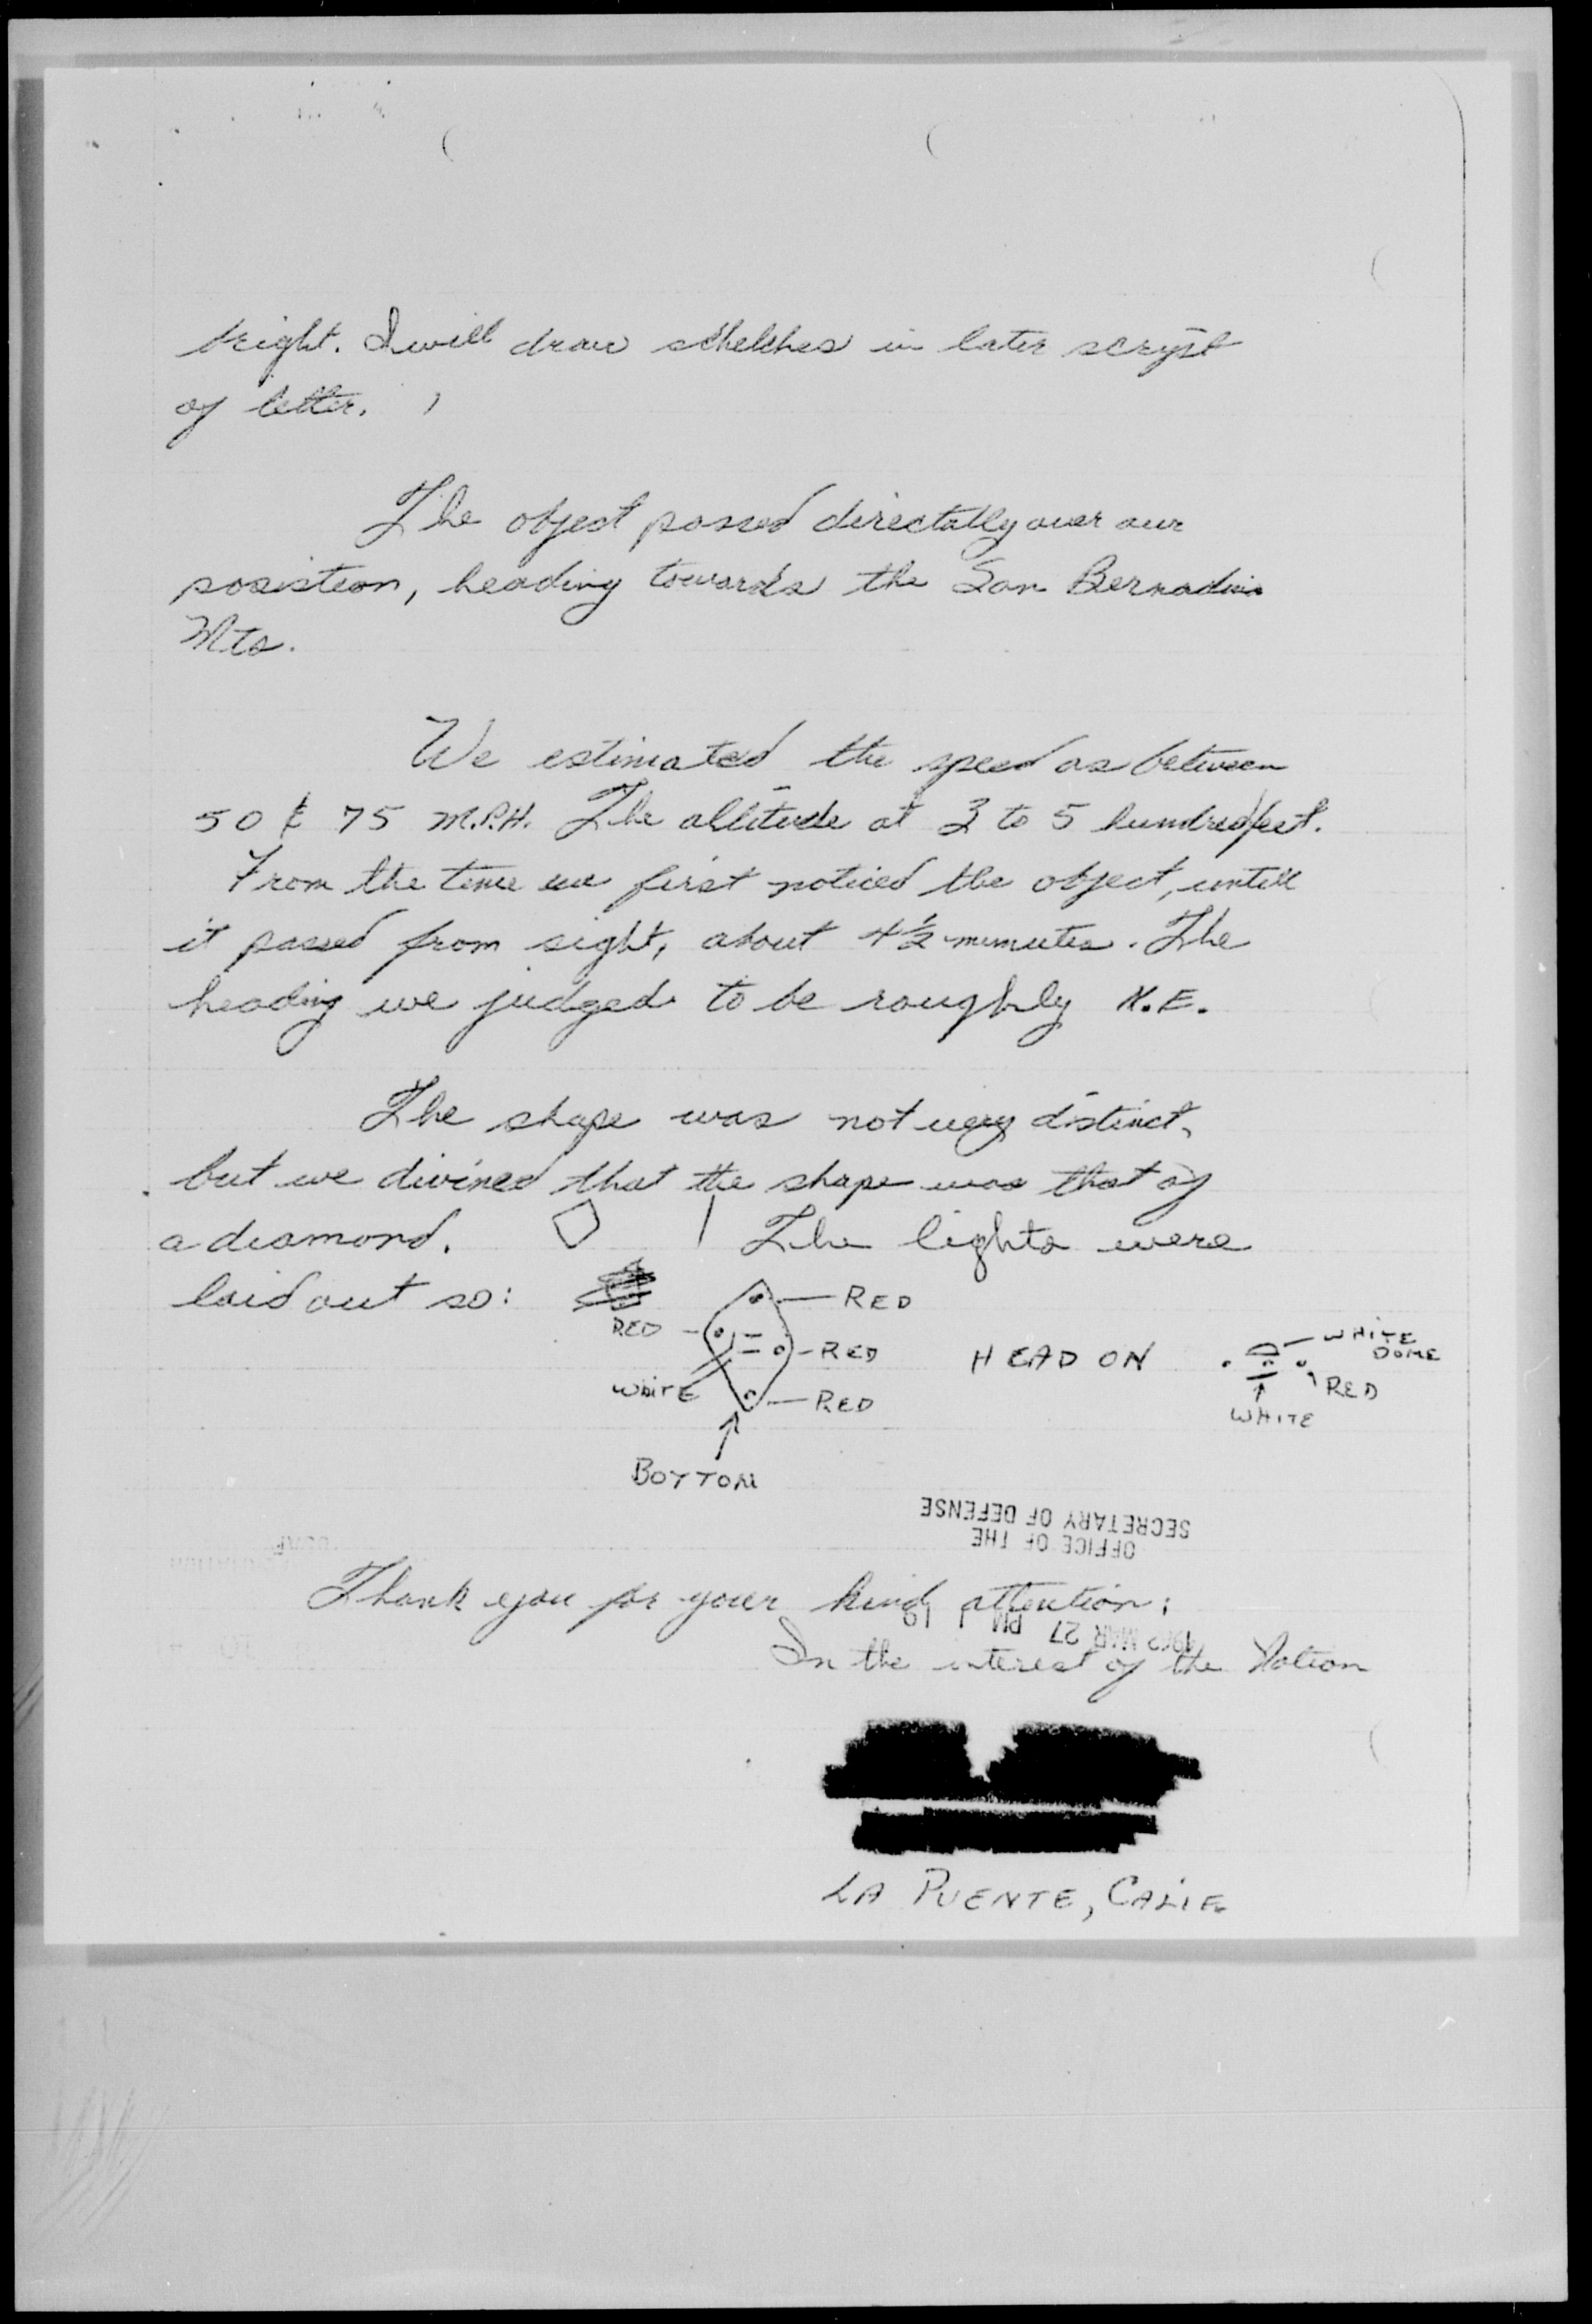 bright. I will draw schelches in later scrypt
of letter.
The object passed directally over our
posistion, heading towards the San Bernadino
Mts.
We estimated the speed as between
50 & 75 M.P.H. The altitude at 3 to 5 hundred feet.
From the time we first noticed the object, untill
it passed from sight, about 4½ munutes. The
heading we judged to be roughly N.E.
The shape was not very distinct,
but we divined that the shape was that of
a diamond. The lights were
laid out so:
RED
RED
RED
WHITE
RED
BOTTOM
HEAD ON
WHITE
DOME
RED
WHITE
SECRETARY OF DEFENSE
OFFICE OF THE
Thank you for your kind attention;
MAR 27 PM 1
In the interest of the Nation
LA PUENTE, CALIF.